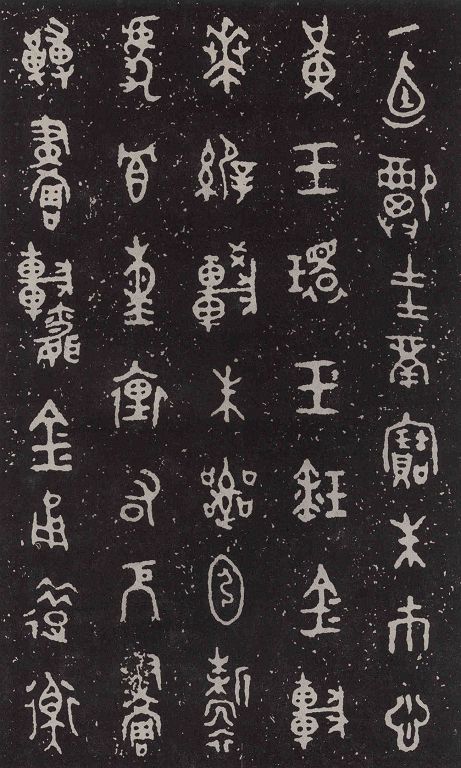 一卣祼圭瓚寶朱巿悤
黃玉環玉瑹金車
𠦪縟較朱鞹靳
虎冟熏裏右厄畫
轉畫金甬錯衡